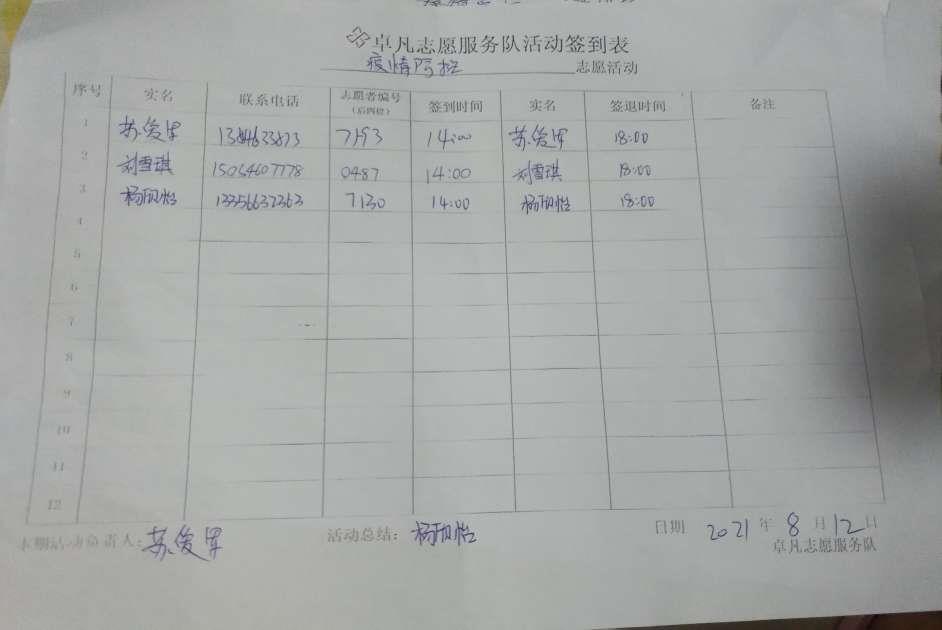 卓凡志愿服务队活动签到表
疫情防控 志愿活动
序号 实名 联系电话 志愿者编号 签到时间 实名 签退时间 备注
(后四位)
1 苏俊军 13 7193 14:00 苏俊军 18:00
2 刘雪琪 15054607778 0487 14:00 刘雪琪 18:00
3 杨珊怡 13356632363 7130 14:00 杨珊怡 18:00
4
5
6
7
8
9
10
11
12
本期活动负责人: 苏俊军 活动总结: 杨珊怡 日期 2021 年 8 月 12 日
卓凡志愿服务队